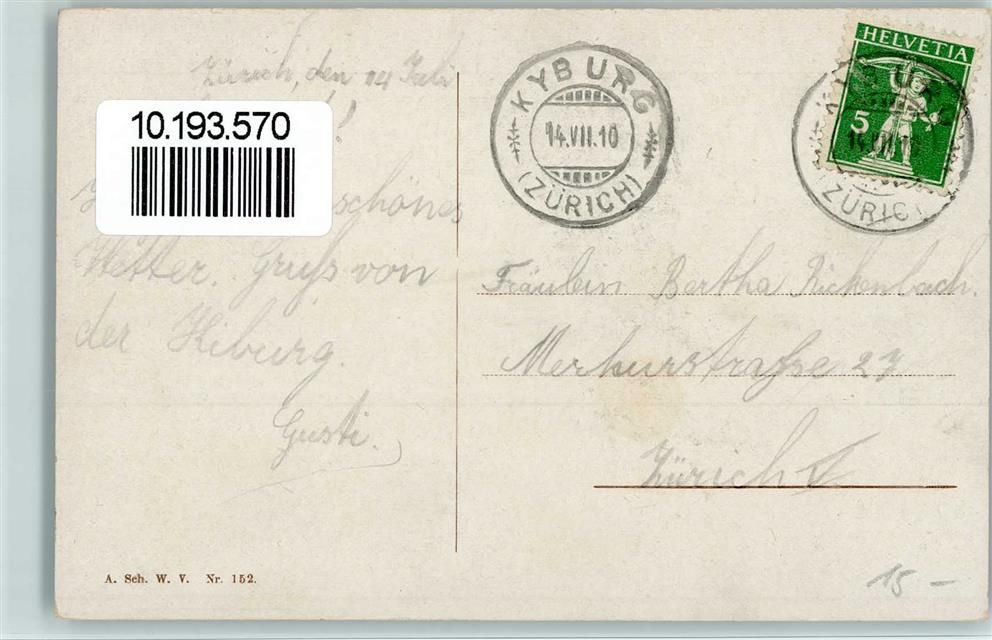 Zürich, den 14 Juli
!
10.193.570
schönes
Wetter. Gruß von
der Kiburg.
Gusti.
A. Sch. W. V. Nr. 152.
KYBURG
14.VII.10
(ZÜRICH)
HELVETIA
5
KYBURG
14.VII.10
(ZÜRICH)
Fräulein Bertha Rickenbach.
Merkurstraße 27
Zürich V
15 –